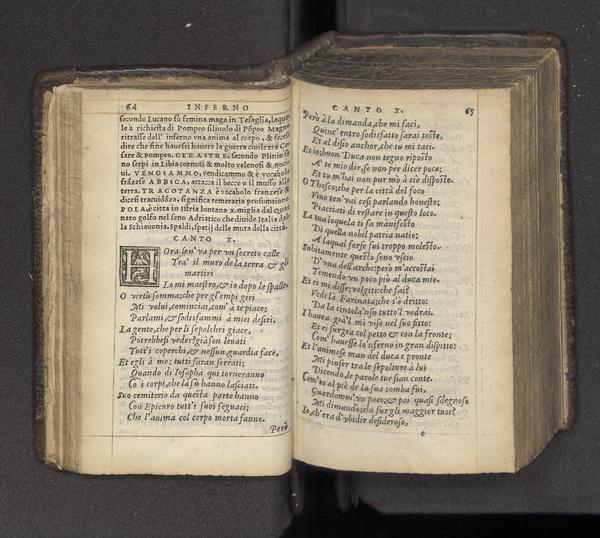 64 INFERNO
secondo Lucano fu femina maga in Tesaglia, laqua
le à richiesta di Pompeo filiuolo di Pōpeo Magno
ritrasse dell' inferno vna anima al corpo, & fecesi
dire che fine hauessi hauere la guerra ciuile tra Ce
sare & Pompeo. CERASTRE, secondo Plinio so
no serpi in Libia cornuti & molto velenosi & noci
ui. VENGIAMMO, vendicammo & è vocabolo
frāzese ABBICA, attacca il becco o il muso alla
terra. TRACOTANZA è vocabolo franzese &
dicesi tracuidāza, significa temeraria prosuntione.
POLA, è citta in Istria lontana x. miglia dal Quar
naro golfo nel seno Adriatico che diuide Italia dal
la Schiauonia. Spaldi, spatij delle mura della città.
CANTO X.
HOra sen' va per vn secreto calle
Tra' il muro de la terra & gli
martiri
Lo mi maestro, & io dopo le spalle.
O virtù somma; che per gl'empi giri
Mi volui, cominciai, com' à te piace;
Parlami, & sodisfammi à miei desiri.
La gente, che per li sepolchri giace,
Potrebbesi veder? già son leuati
Tutt'i coperchi, & nessun guardia face,
Et egli à me; tutti saran serrati;
Quando di Iosapha qui torneranno
Co i corpi, che la sù hanno lasciati.
Suo cemiterio da questa parte hanno
Con Epicuro tutt'i suoi seguaci;
Che l'anima col corpo morta fanno.
Però
CANTO X. 65
Però à la dimanda, che mi faci,
Quinc' entro sodisfatto sarai tosto,
Et al disio anchor, che tu mi taci.
Et io; buon Duca non tegno riposto
A te mio dir, se non per dicer poco;
Et tu m'hai non pur mò à ciò disposto.
O Thosco; che per la città del foco
Viuo ten' vai così parlando honesto;
Piacciati di restare in questo loco.
La tua loquela ti fa manifesto
Di quella nobil patria natio;
A laqual forse fui troppo molesto.
Subitamente questo sono vscio
D'vna dell'arche: però m'accostai
Temendo vn poco più al duca mio.
Et ei mi disse; volgiti; che fai?
Vedi là Farinata; che s'è dritto:
Da la cintola'n su tutto'l vedrai.
I hauea già'l mi viso nel suo fitto;
Et ei surgea col petto & con la fronte;
Com' hauesse lo'nferno in gran dispitto:
Et l'animose man del duca e pronte
Mi pinser tra le sepolture à lui
Dicendo, le parole tue sian conte.
Com'io al piè de la sua tomba fui,
Guardommi vn poco; & poi quasi sdegnoso
Mi dimandò; chi fur gli maggior tuoi?
Io, ch'era d'vbidir desideroso,
e